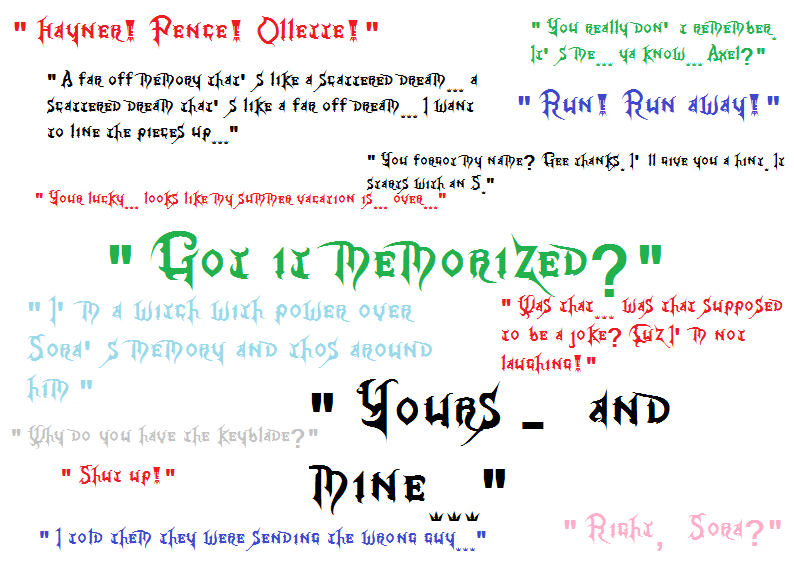 " Hayner! Pence! Ollette! "
" You really don' t remember.
It' s me... ya know... Axel? "
" A far off memory that' s like a scattered dream... a
scattered dream that' s like a far off dream... I want
to line the pieces up... "
" Run! Run away! "
" You forgot my name? Gee thanks. I' ll give you a hint. It
starts with an S. "
" Your lucky... looks like my summer vacation is... over... "
" Got it memorized? "
" I' m a witch with power over
Sora' s memory and thos around
him "
" Was that... was that supposed
to be a joke? Cuz I' m not
laughing! "
" Yours - and
mine... "
" Why do you have the keyblade? "
" Shut up! "
" I told them they were sending the wrong guy... "
" Right, Sora? "